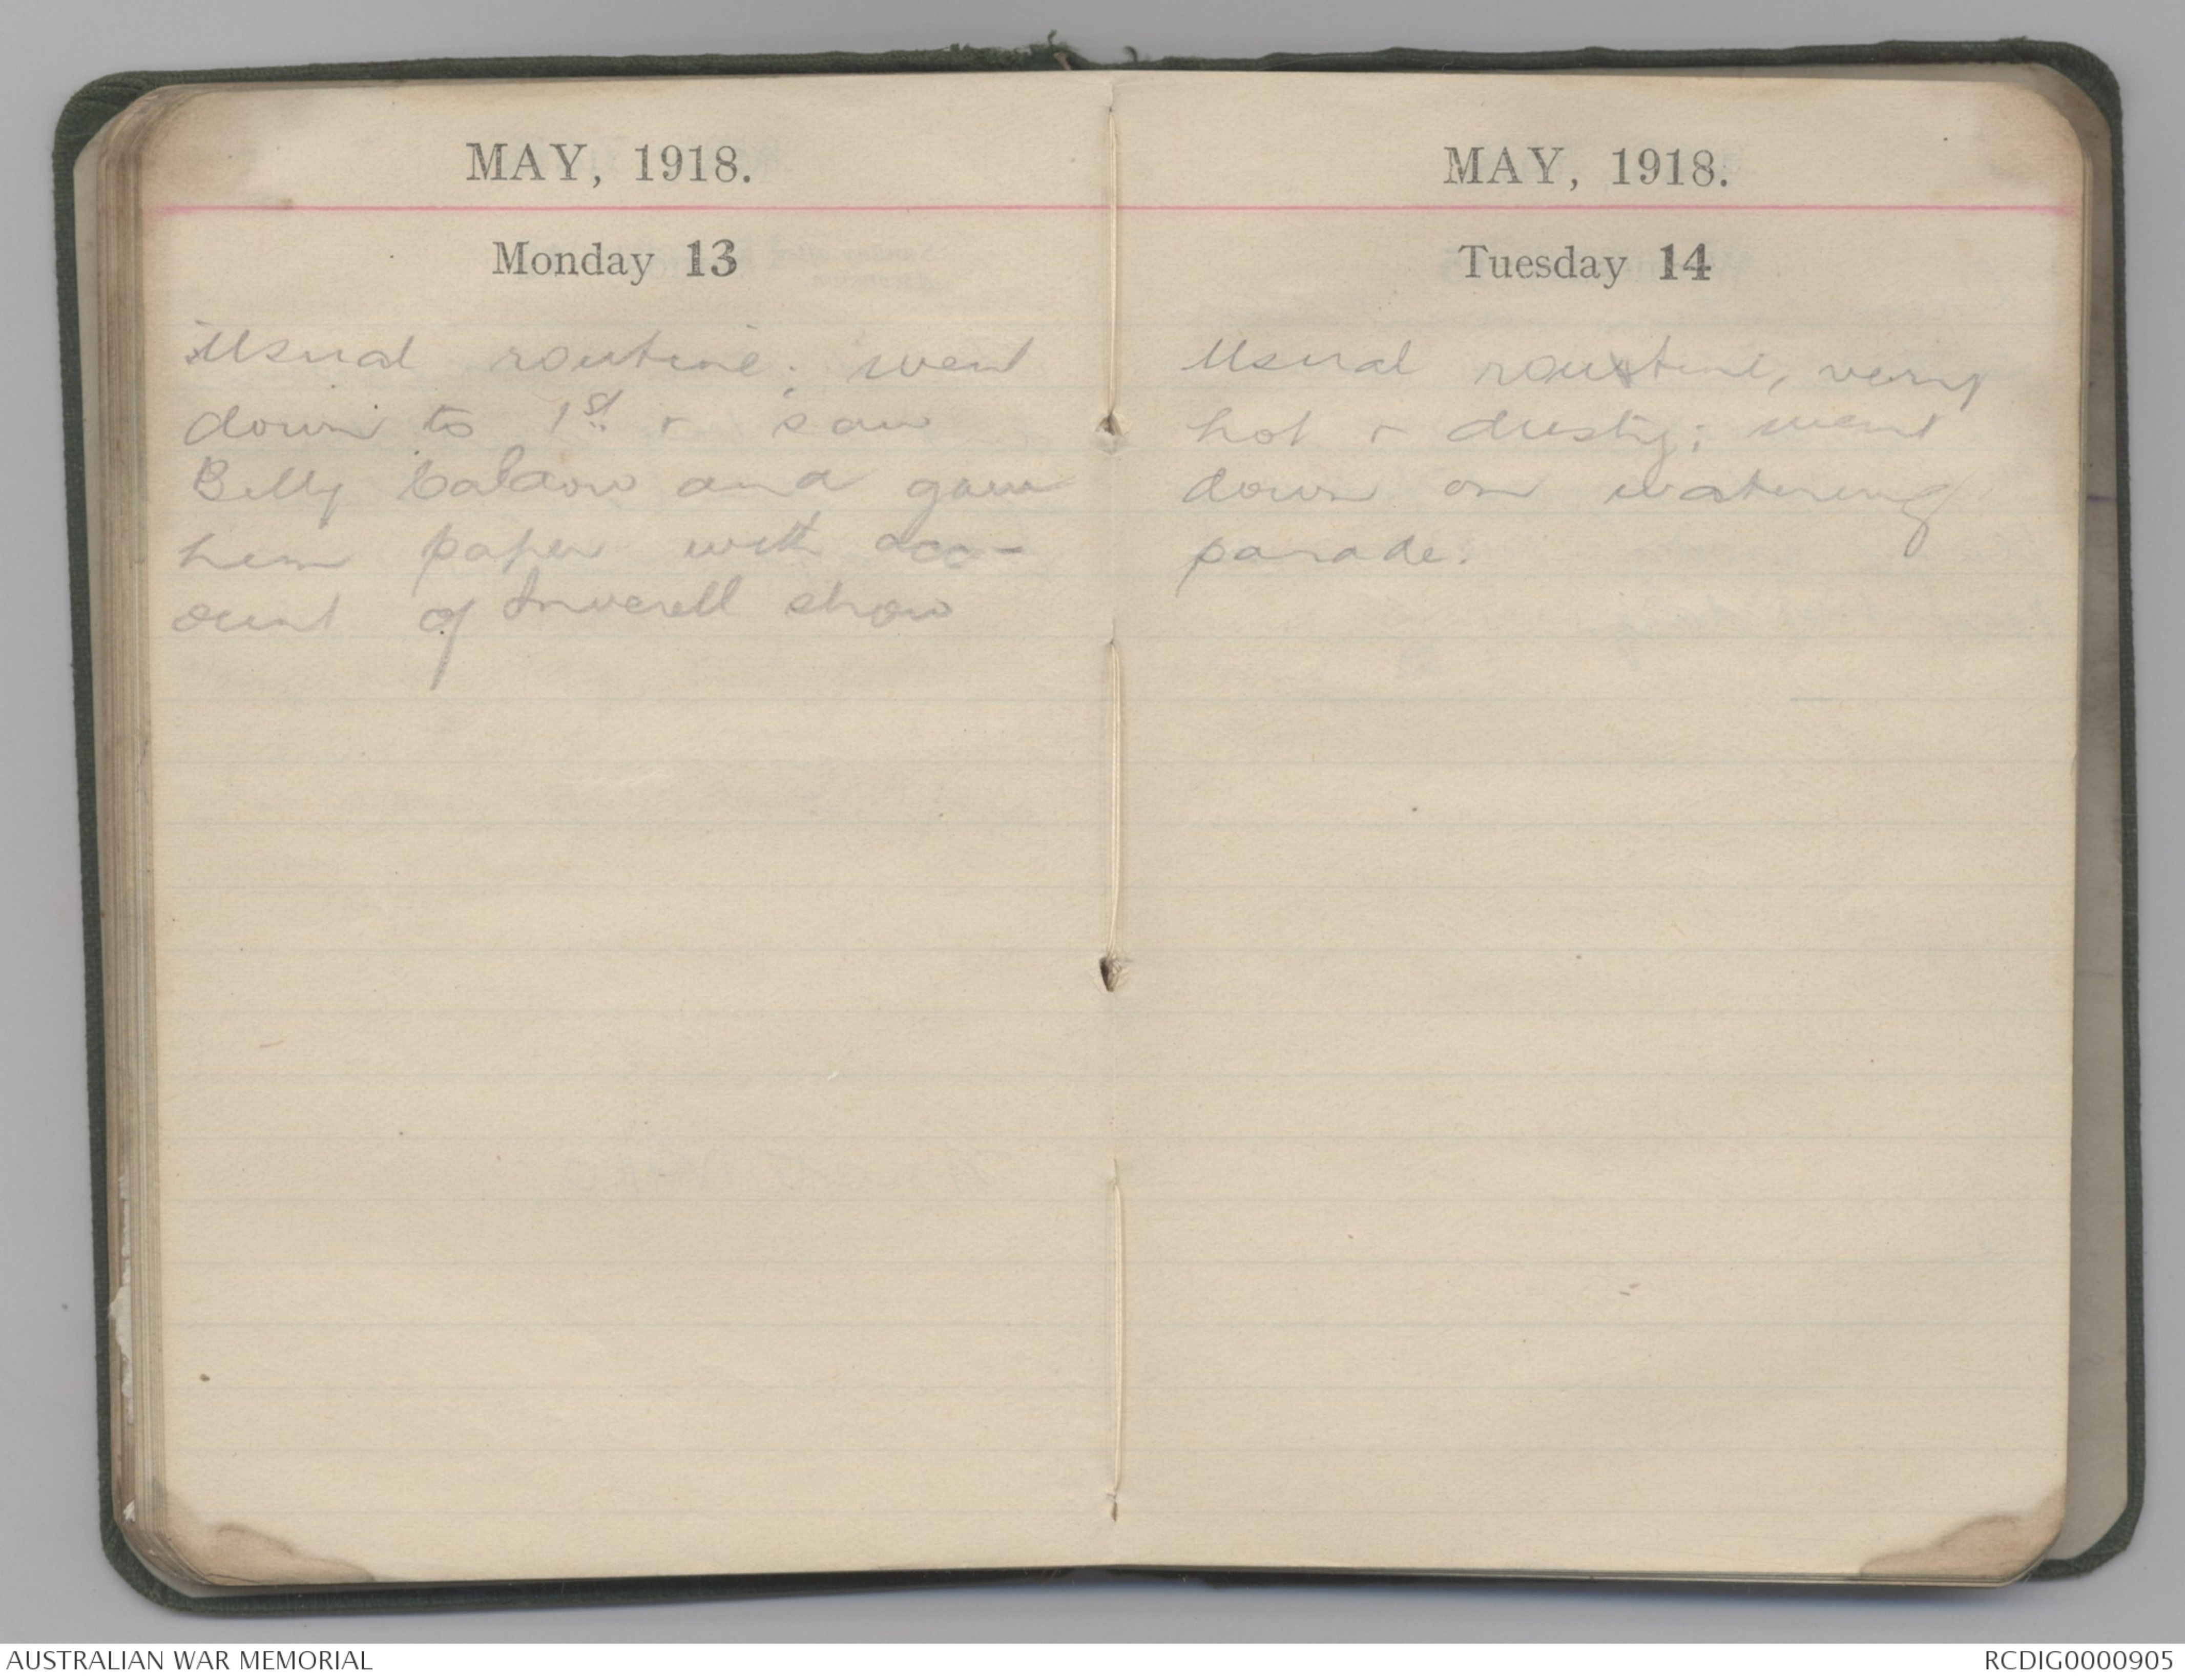 MAY, 1918.
Monday 13
Usual routine; went
down to 1st & saw
Billy and gave
him paper with acco-
ount of Inverell show
MAY, 1918.
Tuesday 14
Usual routine, very
hot & dusty; went
down on watering
parade.
AUSTRALIAN WAR MEMORIAL
RCDIG0000905